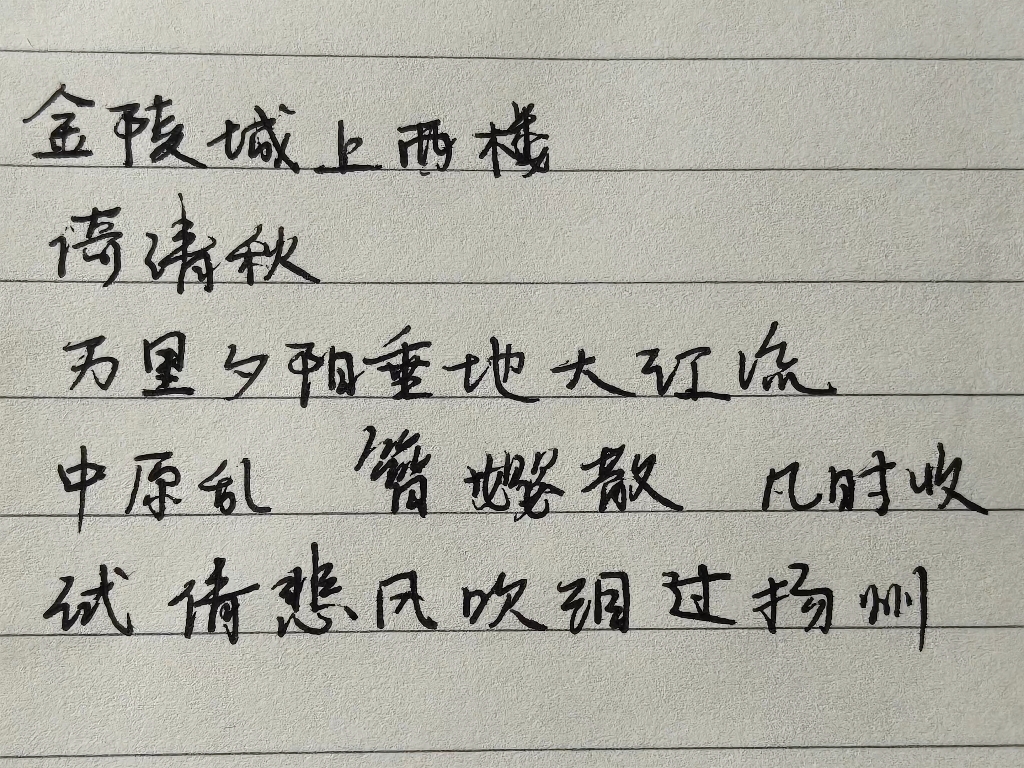 金陵城上西楼
倚清秋
万里夕阳垂地大江流
中原乱 簪缨散 几时收
试倩悲风吹泪过扬州